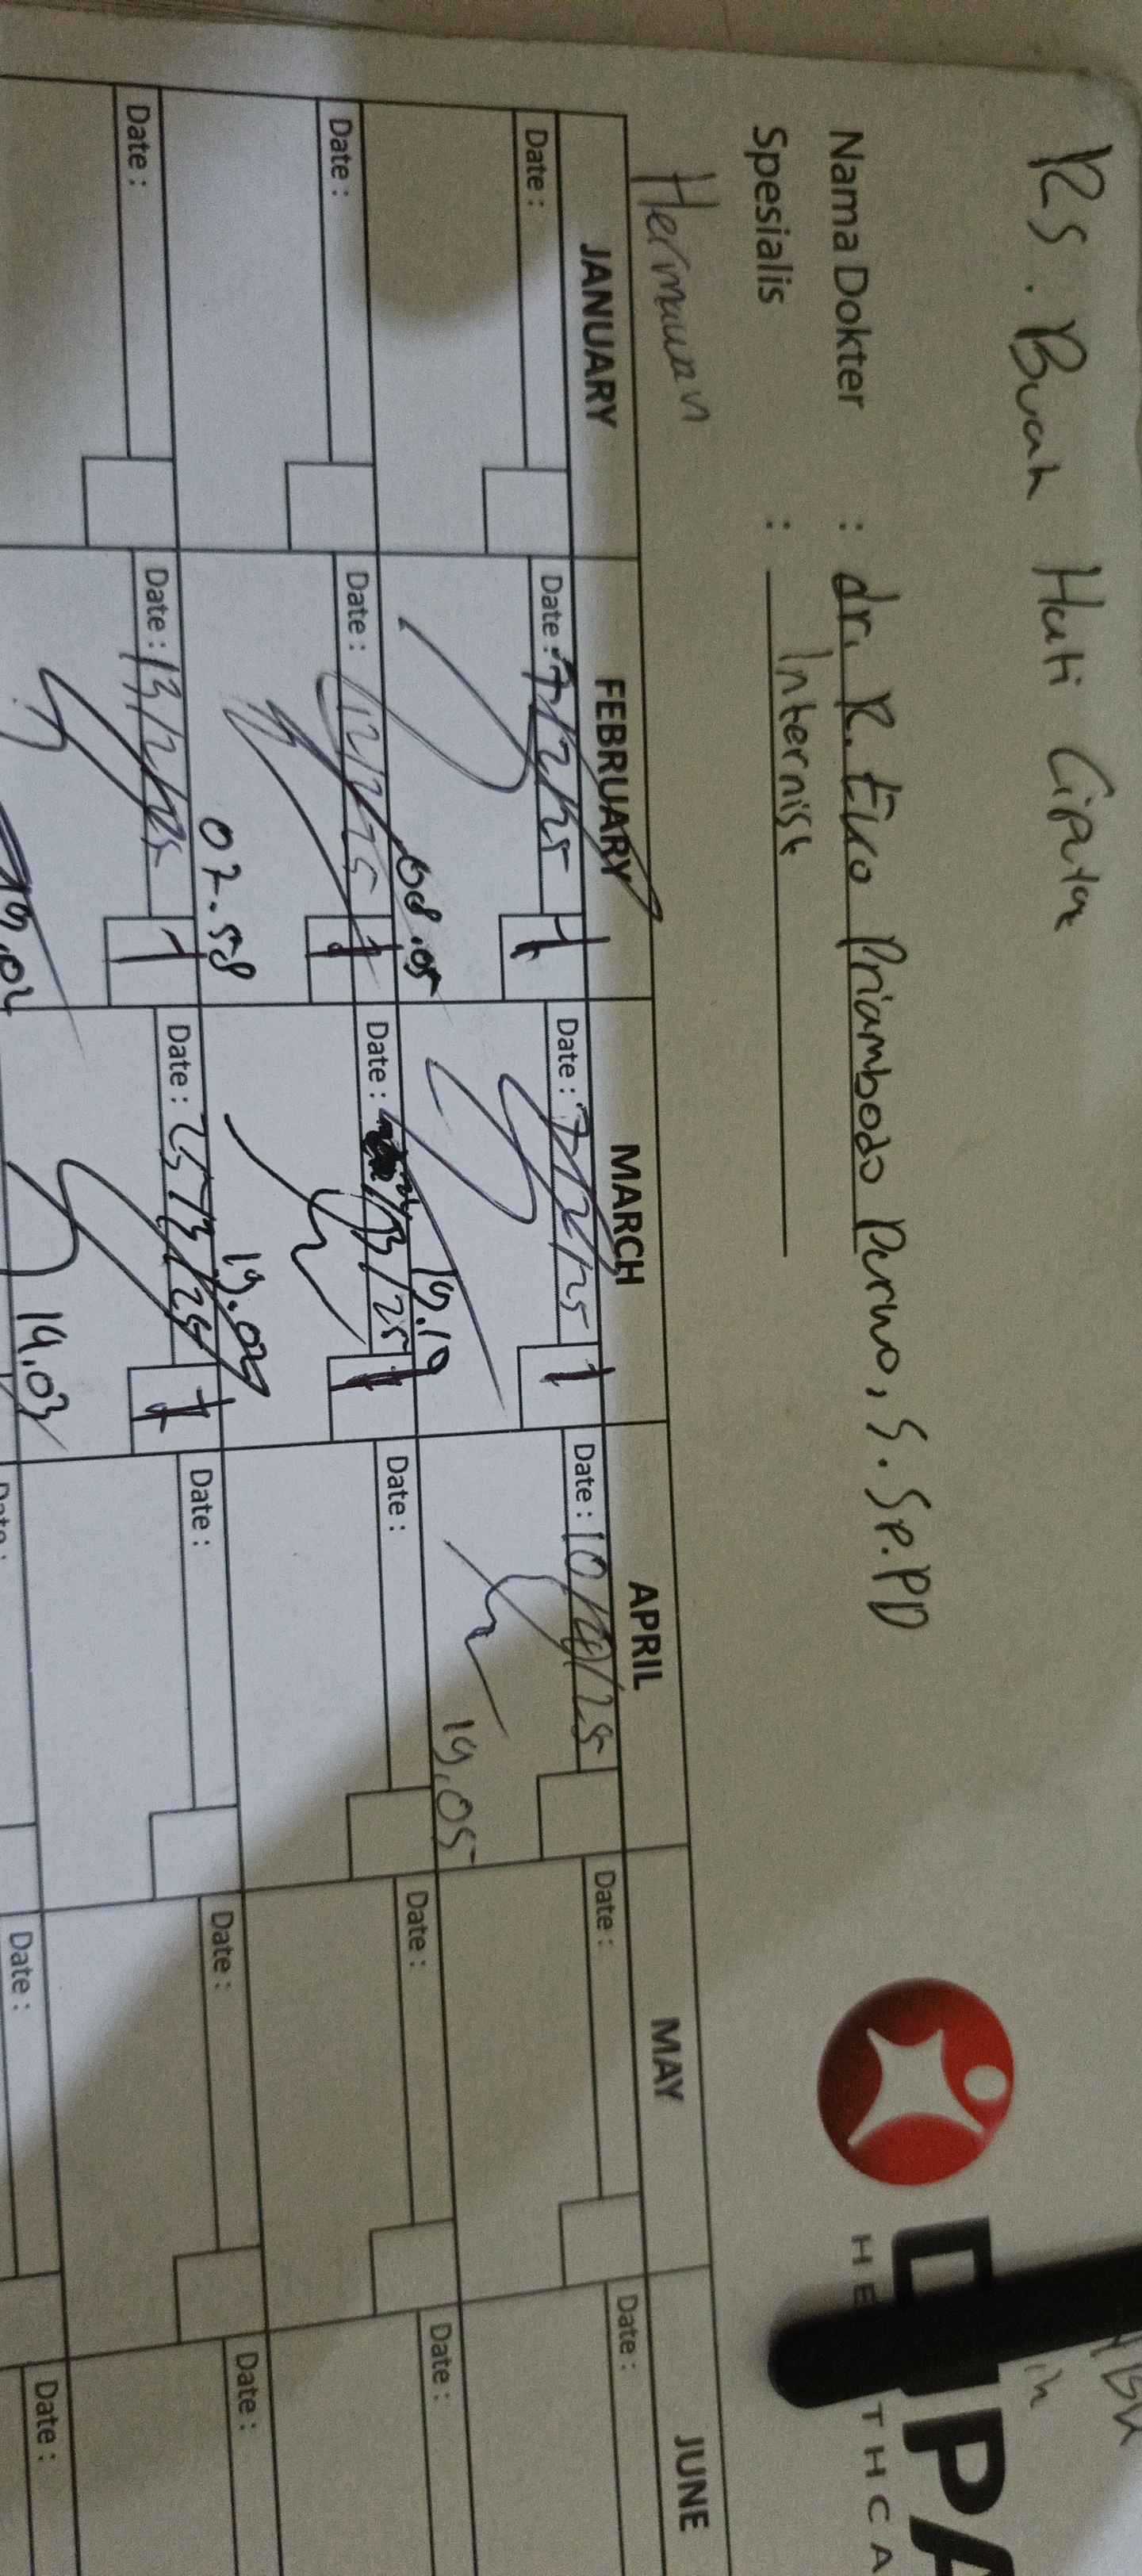 RS. Buah Hati Ciputat
Nama Dokter : dr. R. Eko Priambodo Parwo, S. Sp.PD
Spesialis : Internist
Hermawan
JANUARY FEBRUARY MARCH APRIL MAY JUNE
Date : Date : 7/2/25 1 Date : 1 Date : 10/4/25 Date : Date :
08.05 19.10 19.05
Date : Date : 12/2/25 1 Date : /3/25 1 Date : Date : Date :
07.58 19.05
Date : Date : 13/2/25 1 Date : 25/3/25 1 Date : Date : Date :
19.02 19.03
Date : Date : Date :